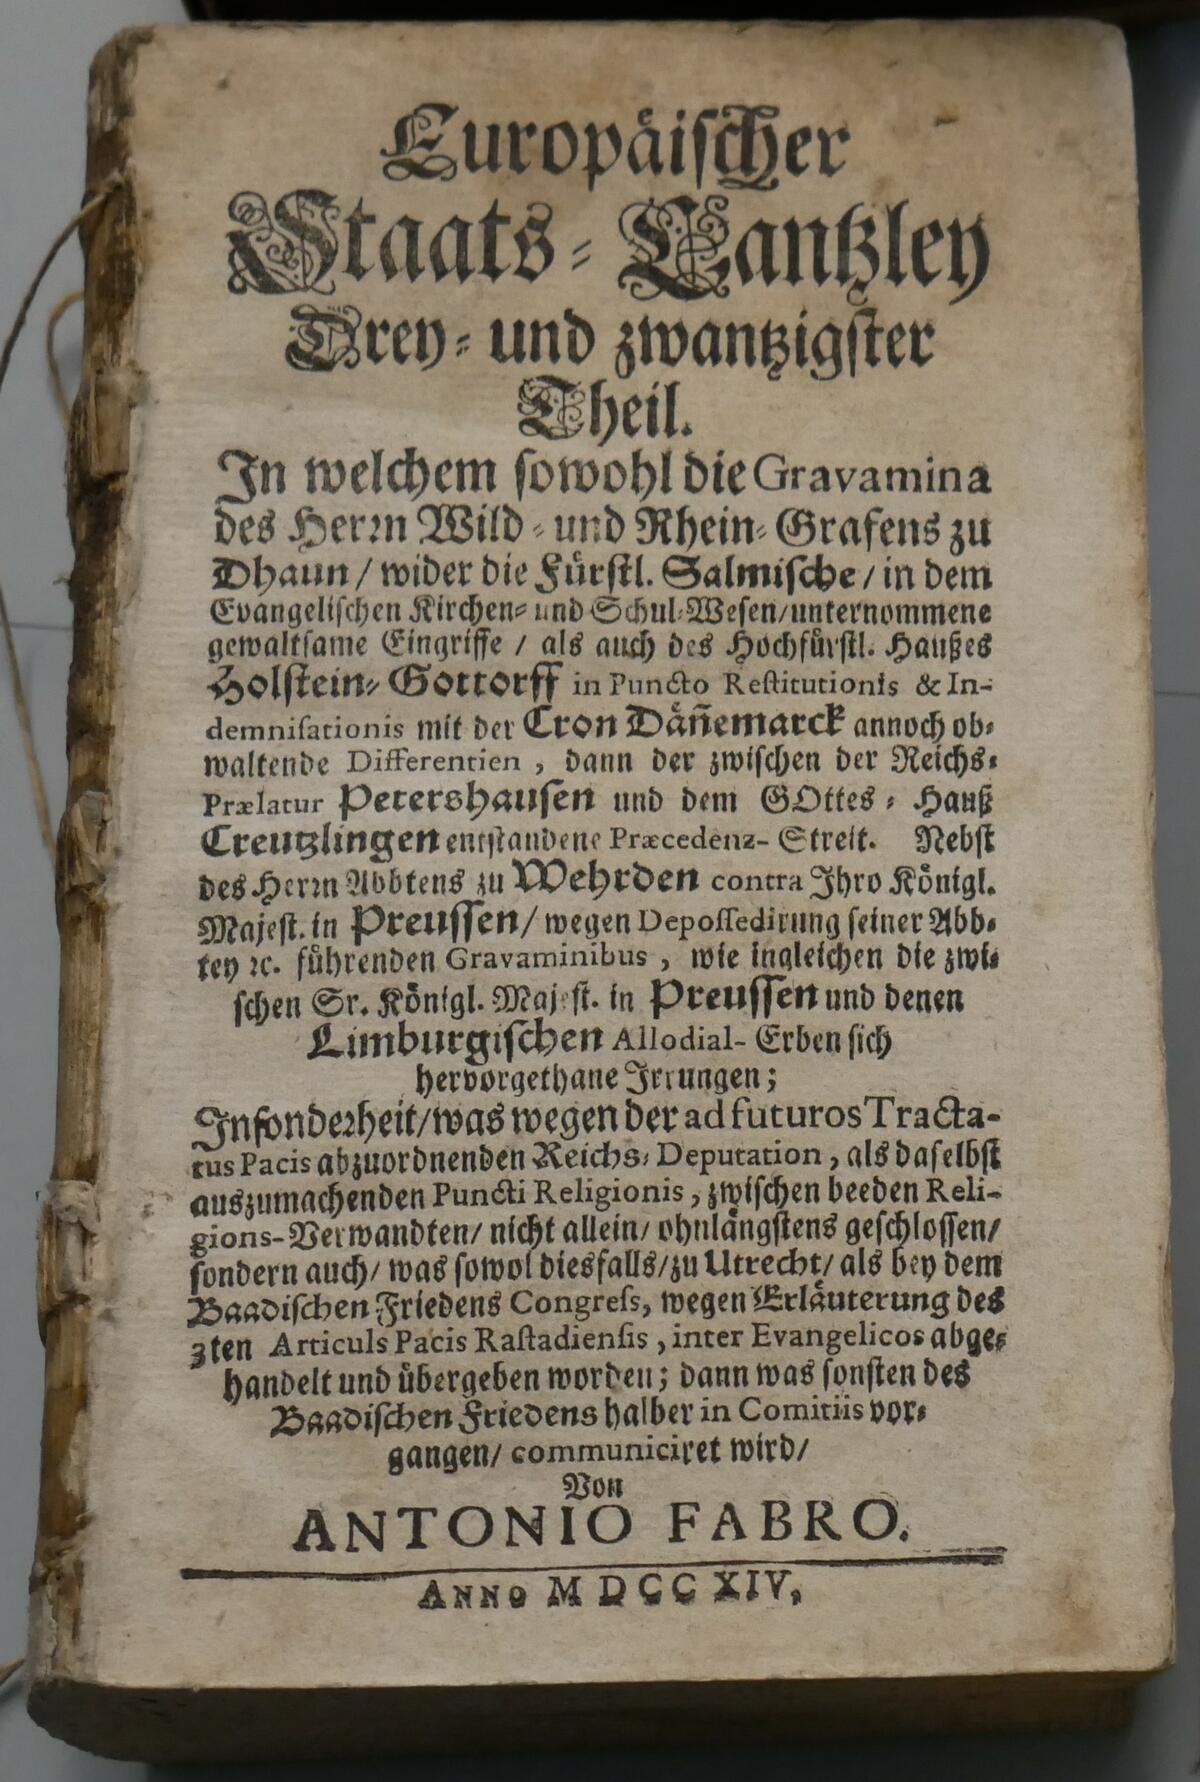 Europäischer
Staats-Cantzley
Drey- und zwantzigster
Theil.
In welchem sowohl die Gravamina
des Herrn Wild- und Rhein-Grafens zu
Dhaun/ wider die Fürstl. Salmische/ in dem
Evangelischen Kirchen- und Schul-Wesen/ unternommene
gewaltsame Eingriffe / als auch des Hochfürstl. Haußes
Holstein-Gottorff in Puncto Restitutionis & In-
demnisationis mit der Cron Däñemarck annoch ob-
waltende Differentien, dann der zwischen der Reichs-
Prælatur Petershausen und dem GOttes-Hauß
Creutzlingen entstandene Præcedenz-Streit. Nebst
des Herrn Abbtens zu Wehrden contra Ihro Königl.
Majest. in Preussen/ wegen Depossedirung seiner Abb-
tey ꝛc. führenden Gravaminibus, wie ingleichen die zwi-
schen Sr. Königl. Majest. in Preussen und denen
Limburgischen Allodial-Erben sich
hervorgethane Irrungen;
Insonderheit/ was wegen der ad futuros Tracta-
tus Pacis abzuordnenden Reichs-Deputation, als daselbst
auszumachenden Puncti Religionis, zwischen beeden Reli-
gions-Verwandten/ nicht allein/ ohnlängstens geschlossen/
sondern auch/ was sowol diesfalls/ zu Utrecht/ als bey dem
Baadischen Friedens Congress, wegen Erläuterung des
3ten Articuls Pacis Rastadiensis, inter Evangelicos abge-
handelt und übergeben worden; dann was sonsten des
Baadischen Friedens halber in Comitiis vor-
gangen/ communiciret wird/
Von
ANTONIO FABRO.
ANNO MDCCXIV,